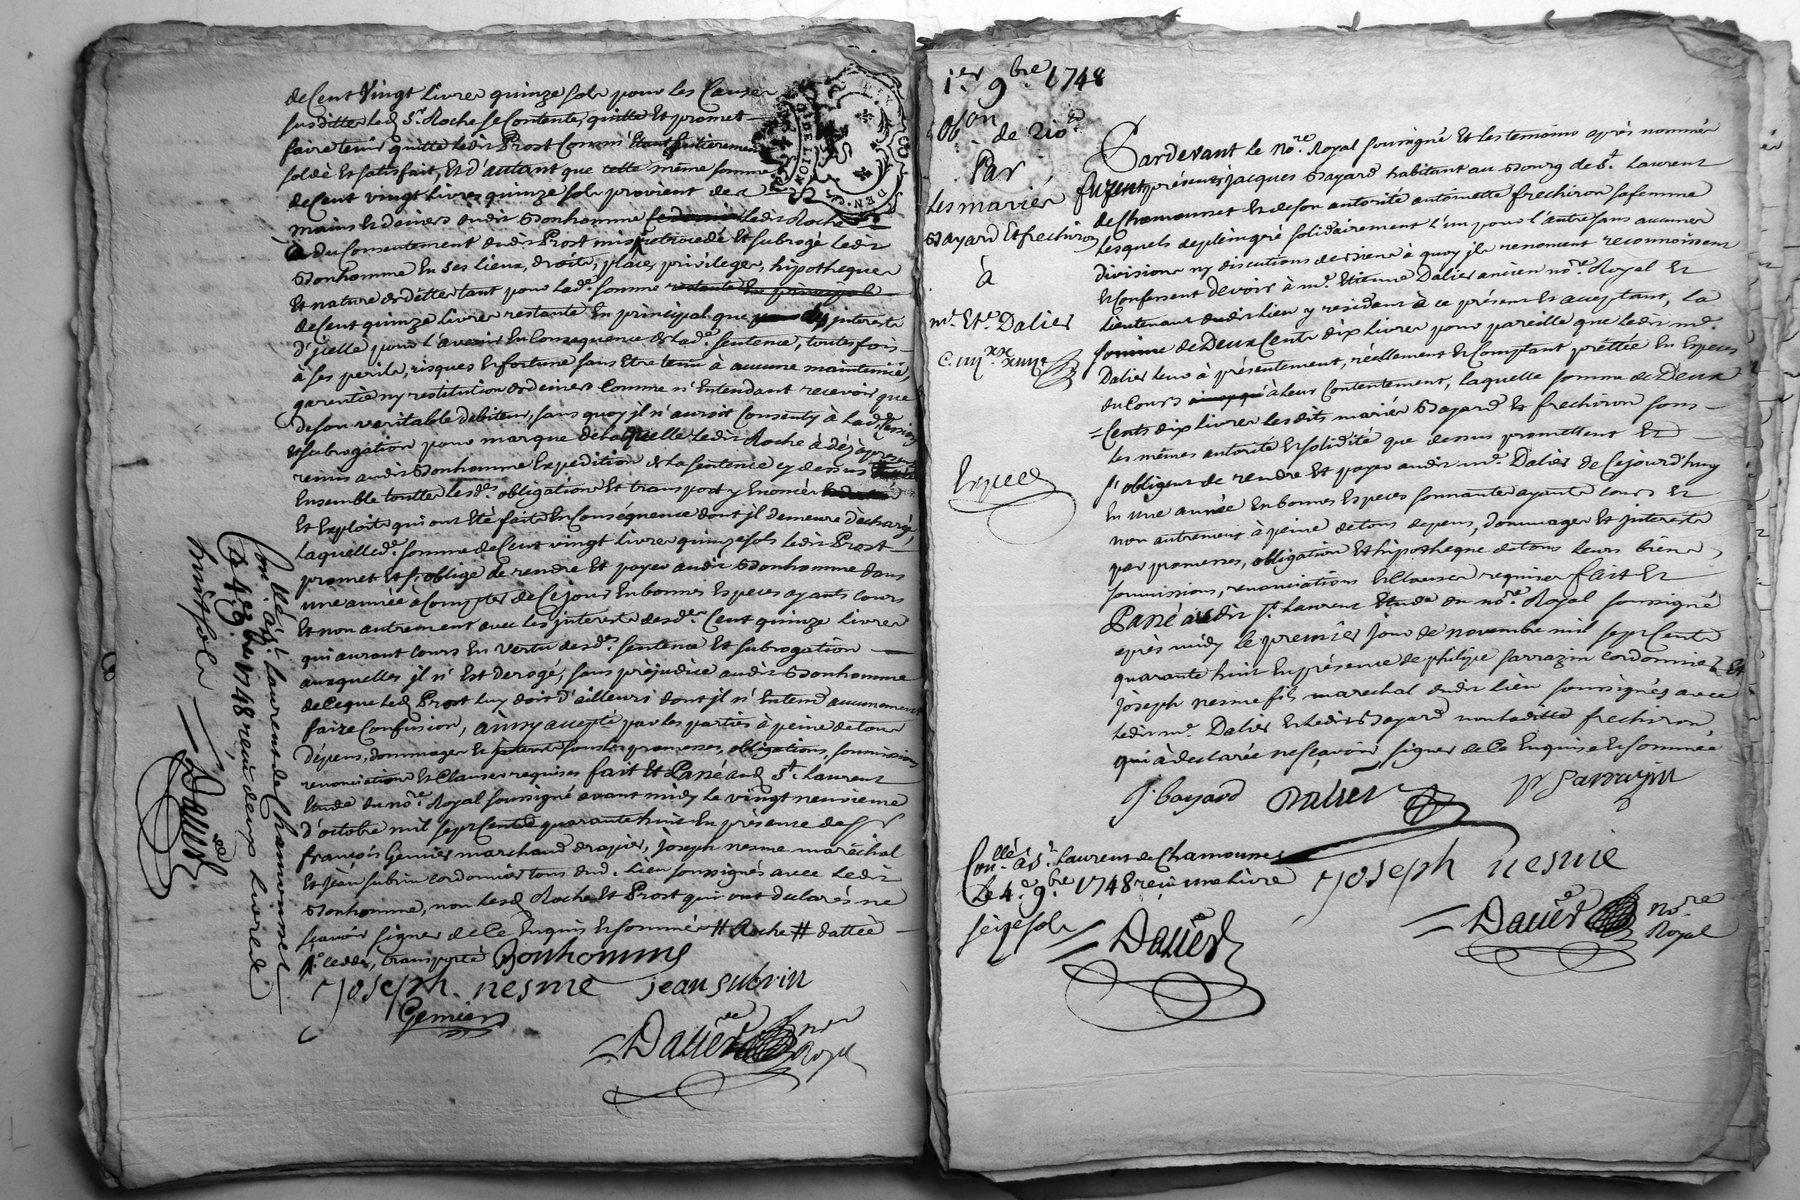 de Cent Vingt livres quinze sols pour les Causes
susdittes led. Sr. Roche se Contente, quitte Et promet
faire tenir quitte ledit Prost Comm' Etant Entierement
soldé Et satisfait, Et d'autant que cette même somme
de Cent vingt livres quinze sols provient des
mains Et deniers dudit Bonhomme ledit Roche
à du Consentement dudit Prost mis, retrocedé Et subrogé ledit
Bonhomme En ses lieux, droits, place, privileges, hipotheques
Et nature de dette tant pour lade. somme restante En principal
de Cent quinze livres restante En principal que interests
d'jcelle pour l'avenir En Consequence de lade. sentence, toutesfois
à ses perils, risques Et fortune sans Etre tenu à aucune maintenüe,
garentie ny restitution de deniers Comme n'Entendant recevoir que
de son veritable debiteur, sans quoy jl n'auroit Consenty à lade. Cession
Et subrogation pour marque de laquelle ledit Roche à déjà présent
remis audit Bonhomme Expedition de la sentence cy dessus
Ensemble touttes lesdes. obligation Et transport y Enoncés
Et Exploits qui ont Eté faits En Conséquence dont jl demeure déchargé,
laquelle de. somme de Cent vingt livres quinze sols ledit Prost
promet Et s'oblige de rendre Et payer audit Bonhomme dans
une année à Compter de Ce jour En bonnes Especes ayants cours
Et non autrement avec les jnterests desdes. Cent quinze livres
qui auront cours En vertu desdes. sentence Et subrogation
auxquelles jl n'Est derogé, sans préjudice audit Bonhomme
de Ce que led. Prost luy doit d'ailleurs dont jl n'Entend aucunement
faire Confusion, ainsy accepté par les parties à peine de tous
dépens, dommages Et jnterests sous les promesses, obligations, soumissions
renonciations Et Clauses requises fait Et Passé aud. St. Laurent
Etude du nore. Royal soussigné avant midy le vingt neuvieme
d'octobre mil sept Cents quarante huit En présence de Sr.
françois Gemier marchand drapier, Joseph nesme maréchal
Et Jean subrin cordonnier tous dud. lieu soussignés avec ledit
Bonhomme, non lesd. Roche Et Prost qui ont declarés ne
sçavoir signer de Ce Enquis Et sommés # Roche # dattée
cedde, transporté Bonhomme
Joseph nesme jean subrin
Gemier
Dalier nore
Royal
Conllé. à St. Laurent de Chamousset
Le 4e. 9bre 1748 reçu deux livres
huit sols
Dalier
1er 9bre 1748
Obon. de 210
Par
Les mariés
Bayard Et frechiron
à
mr. Ete. Dalier
Expeed
Pardevant Le Nore. Royal soussigné Et les temoins après nommés
furent présents Jacques Bayard habitant au Bourg de St. Laurent
de Chamousset Et de son autorité antoinette frechiron sa femme
Lesquels de plein gré solidairement l'un pour l'autre sans aucunes
division ny discutions de biens à quoy jls renoncent reconnoissent
Et Confessent devoir à mr. Etienne Dalier ancien nore. Royal Et
lieutenant dudit lieu y residant à ce présent Et acceptant, la
somme de Deux Cents dix livres pour pareille que ledit mr.
Dalier leur à présentement, réellement Et Comptant prettée En Especes
du Cours à leur Contentement, laquelle somme de Deux
Cents dix livres lesdits mariés Bayard Et frechiron sous
les mêmes autorité Et solidité que dessus promettent Et
s'obligent de rendre Et payer audit mr. Dalier de Cejourd'huy
En une année En bonnes Especes sonnantes ayants cours Et
non autrement à peine de tous depens, dommages Et jnterests
par promesses, obligation Et hipotheque de tous leurs biens,
soumissions, renonciations Et Clauses requises fait Et
Passé audit St. Laurent Etude du nore. Royal soussigné
après midy le premier jour de novembre mil sept Cents
quarante huit En présence de philipe sarrazin cordonnier Et
Joseph nesme fils marechal dudit lieu soussignés avec
ledit mr. Dalier Et ledit Bayard non laditte frechiron
qui à declarée ne sçavoir signer de Ce Enquise Et sommée
J. bayard Dalier P Sarrazin
Conllé. à St. Laurent de Chamousset
Le 4e. 9bre 1748 reçu une livre
seize sols
Joseph nesme
Dalier
Dalier nore.
Royal